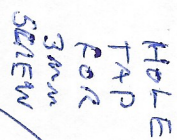 HOLE
TAP
FOR
3mm
SCREW